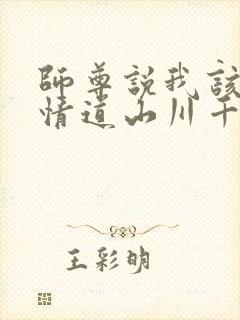 師尊說我該
情道山川千
王彩明